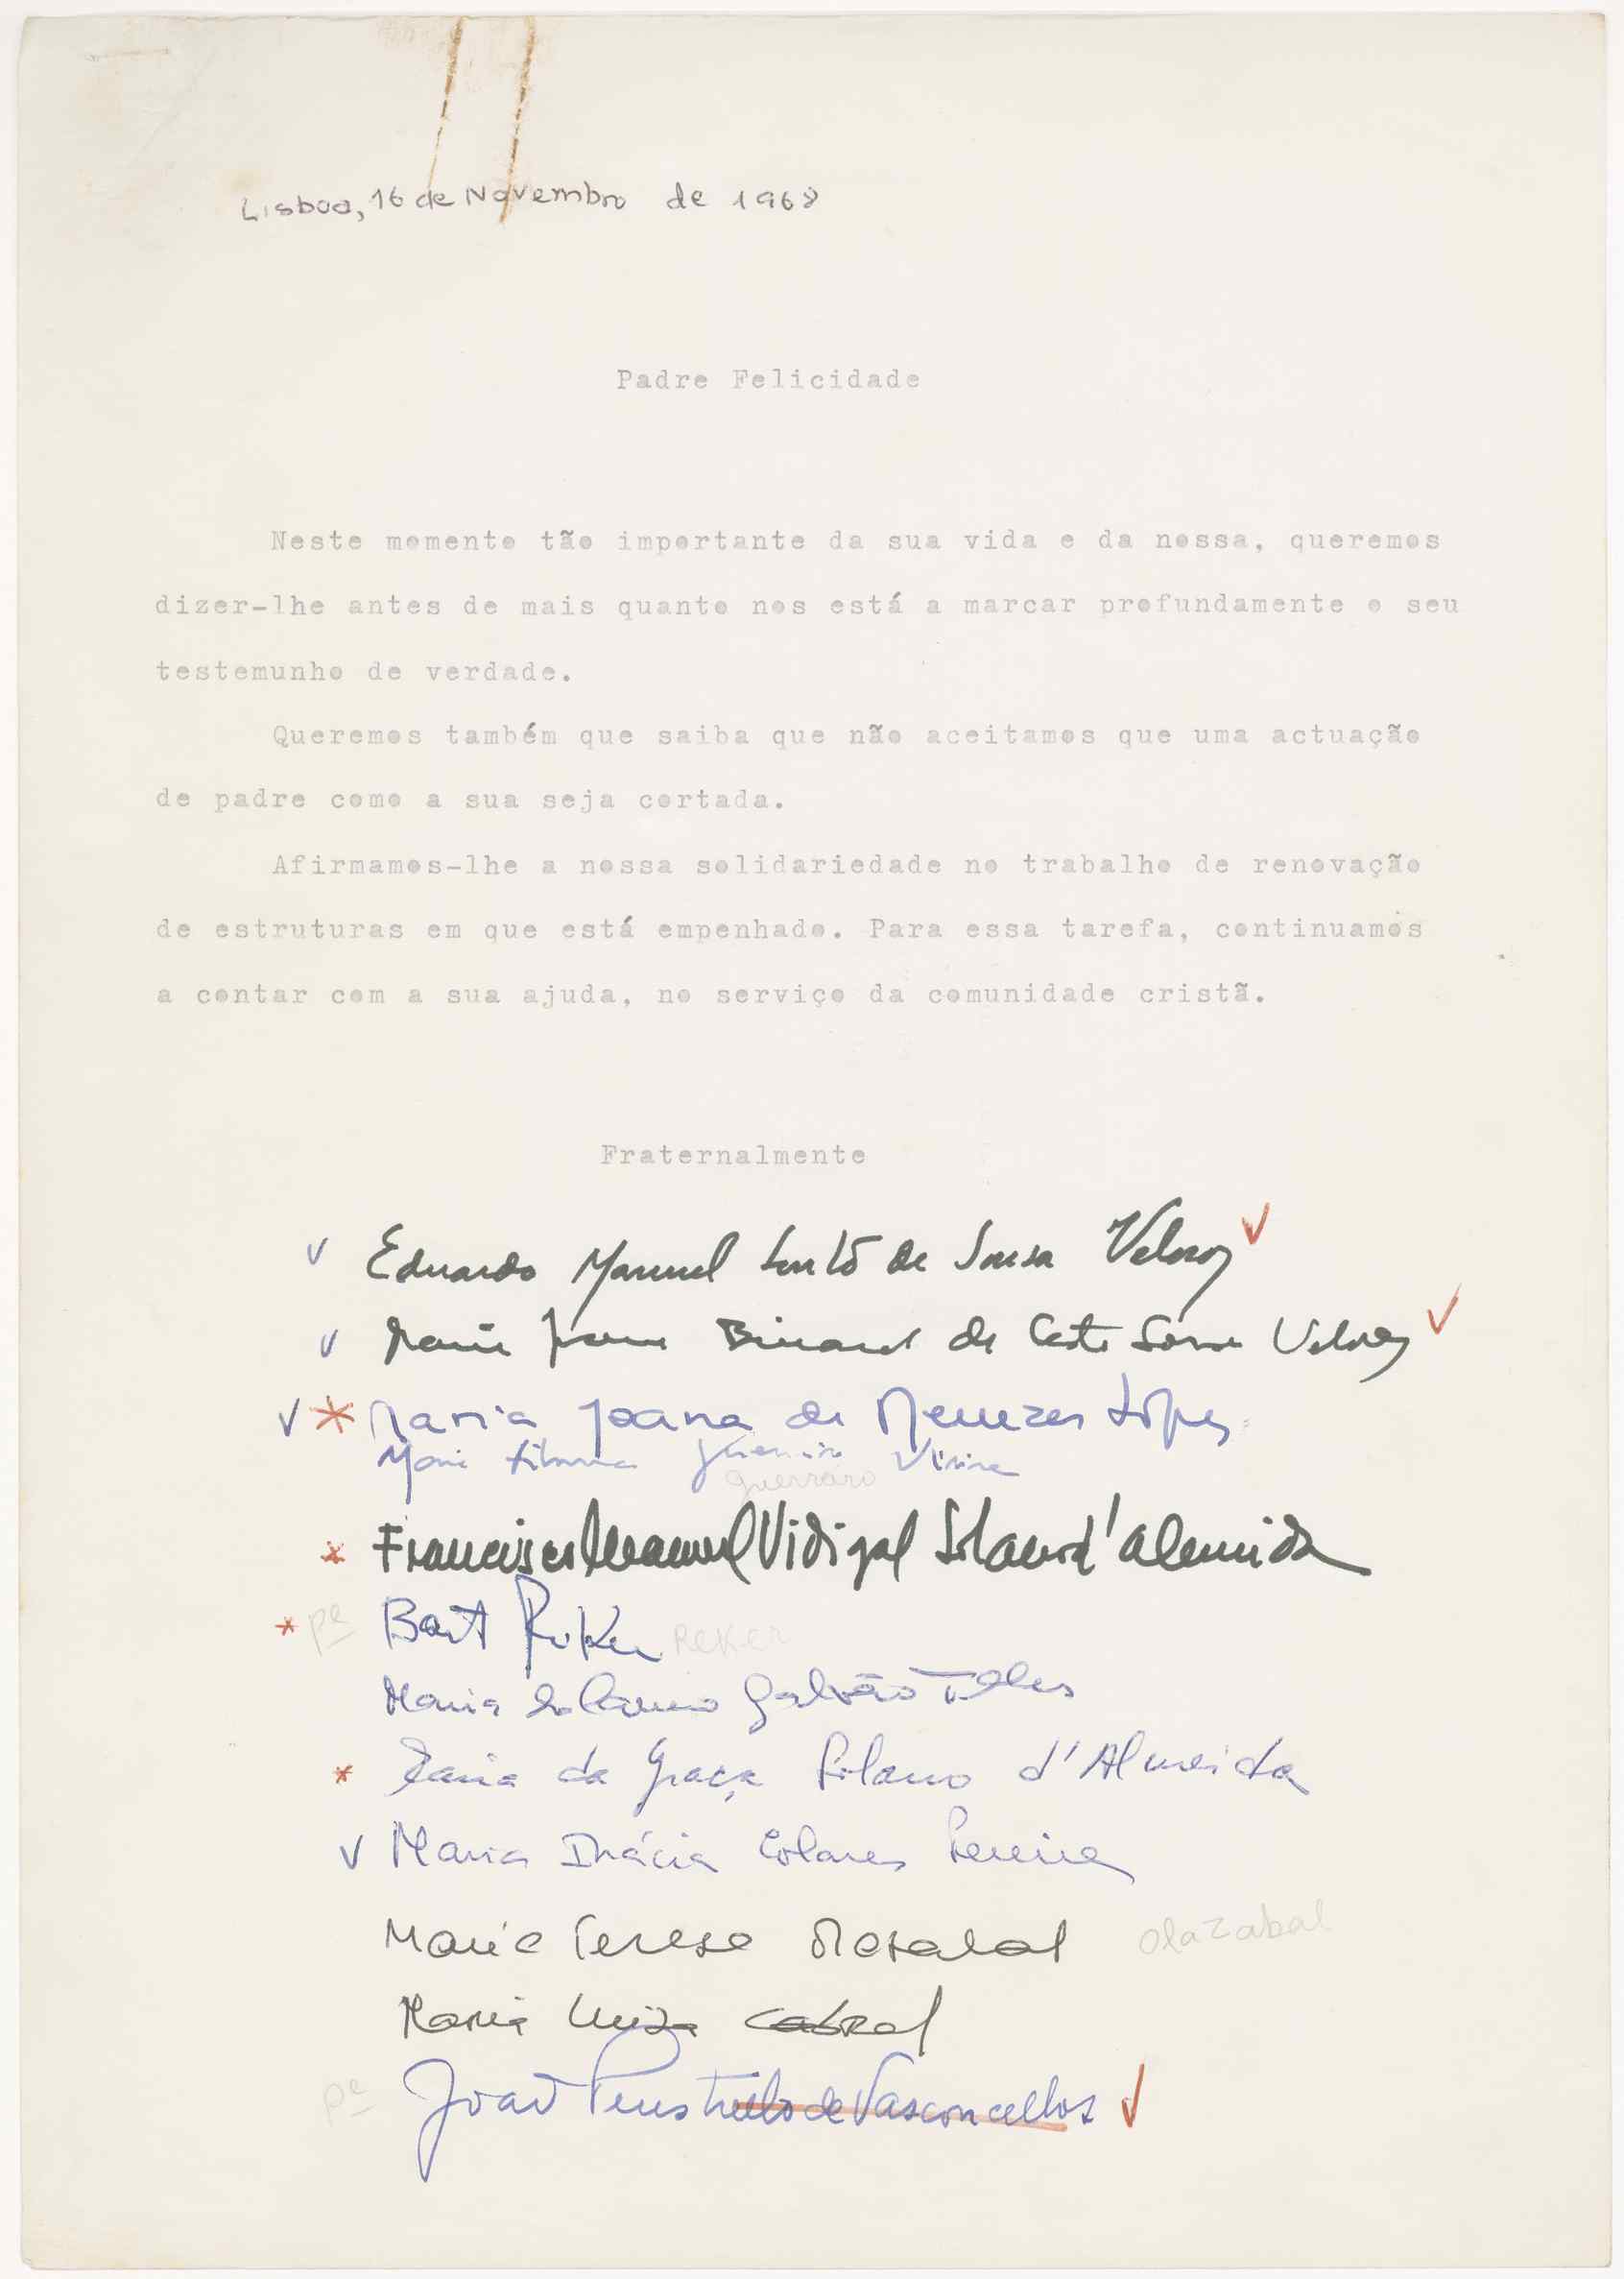 Lisboa, 16 de Novembro de 1968
Padre Felicidade
Neste momento tão importante da sua vida e da nossa, queremos
dizer-lhe antes de mais quanto nos está a marcar profundamente o seu
testemunho de verdade.
Queremos também que saiba que não aceitamos que uma actuação
de padre como a sua seja cortada.
Afirmamos-lhe a nossa solidariedade no trabalho de renovação
de estruturas em que está empenhado. Para essa tarefa, continuamos
a contar com a sua ajuda, no serviço da comunidade cristã.
Fraternalmente
Eduardo Manuel de Sousa Veloso
Maria de Sousa Veloso
Maria Joana de Menezes Lopes
Maria
guerreiro
Francisco Manuel Vidigal Solano d'Almeida
pe Bart Reker
Maria do Carmo Galvão Telles
Maria da Graça Solano d'Almeida
Maria Inácia Colares Pereira
Maria Teresa Olazabal olazabal
Maria Luiza Cabral
pe João Perestrello de Vasconcellos